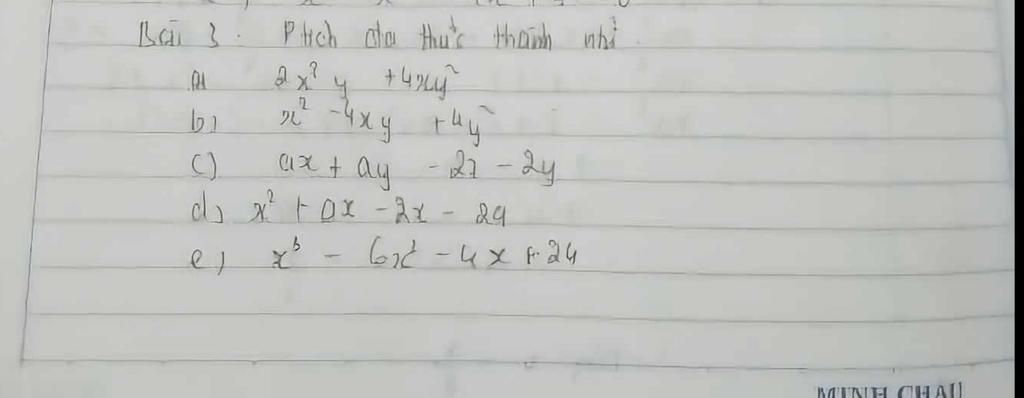 Bài 3: Ptích đa thức thành nhỉ
a) 2x² y + 4xy²
b) x² - 4xy + 4y²
c) ax + ay - 2x - 2y
d) x² + ax - 2x - 2a
e) x³ - 6x² - 4x + 24
MINH CHAU